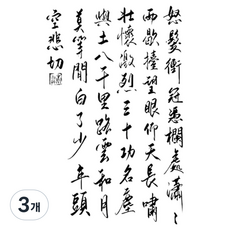 怒髮衝冠憑欄處瀟〻
雨歇擡望眼仰天長嘯
壯懷激烈三十功名塵
與土八千里路雲和月
莫等閒白了少年頭
空悲切
3개